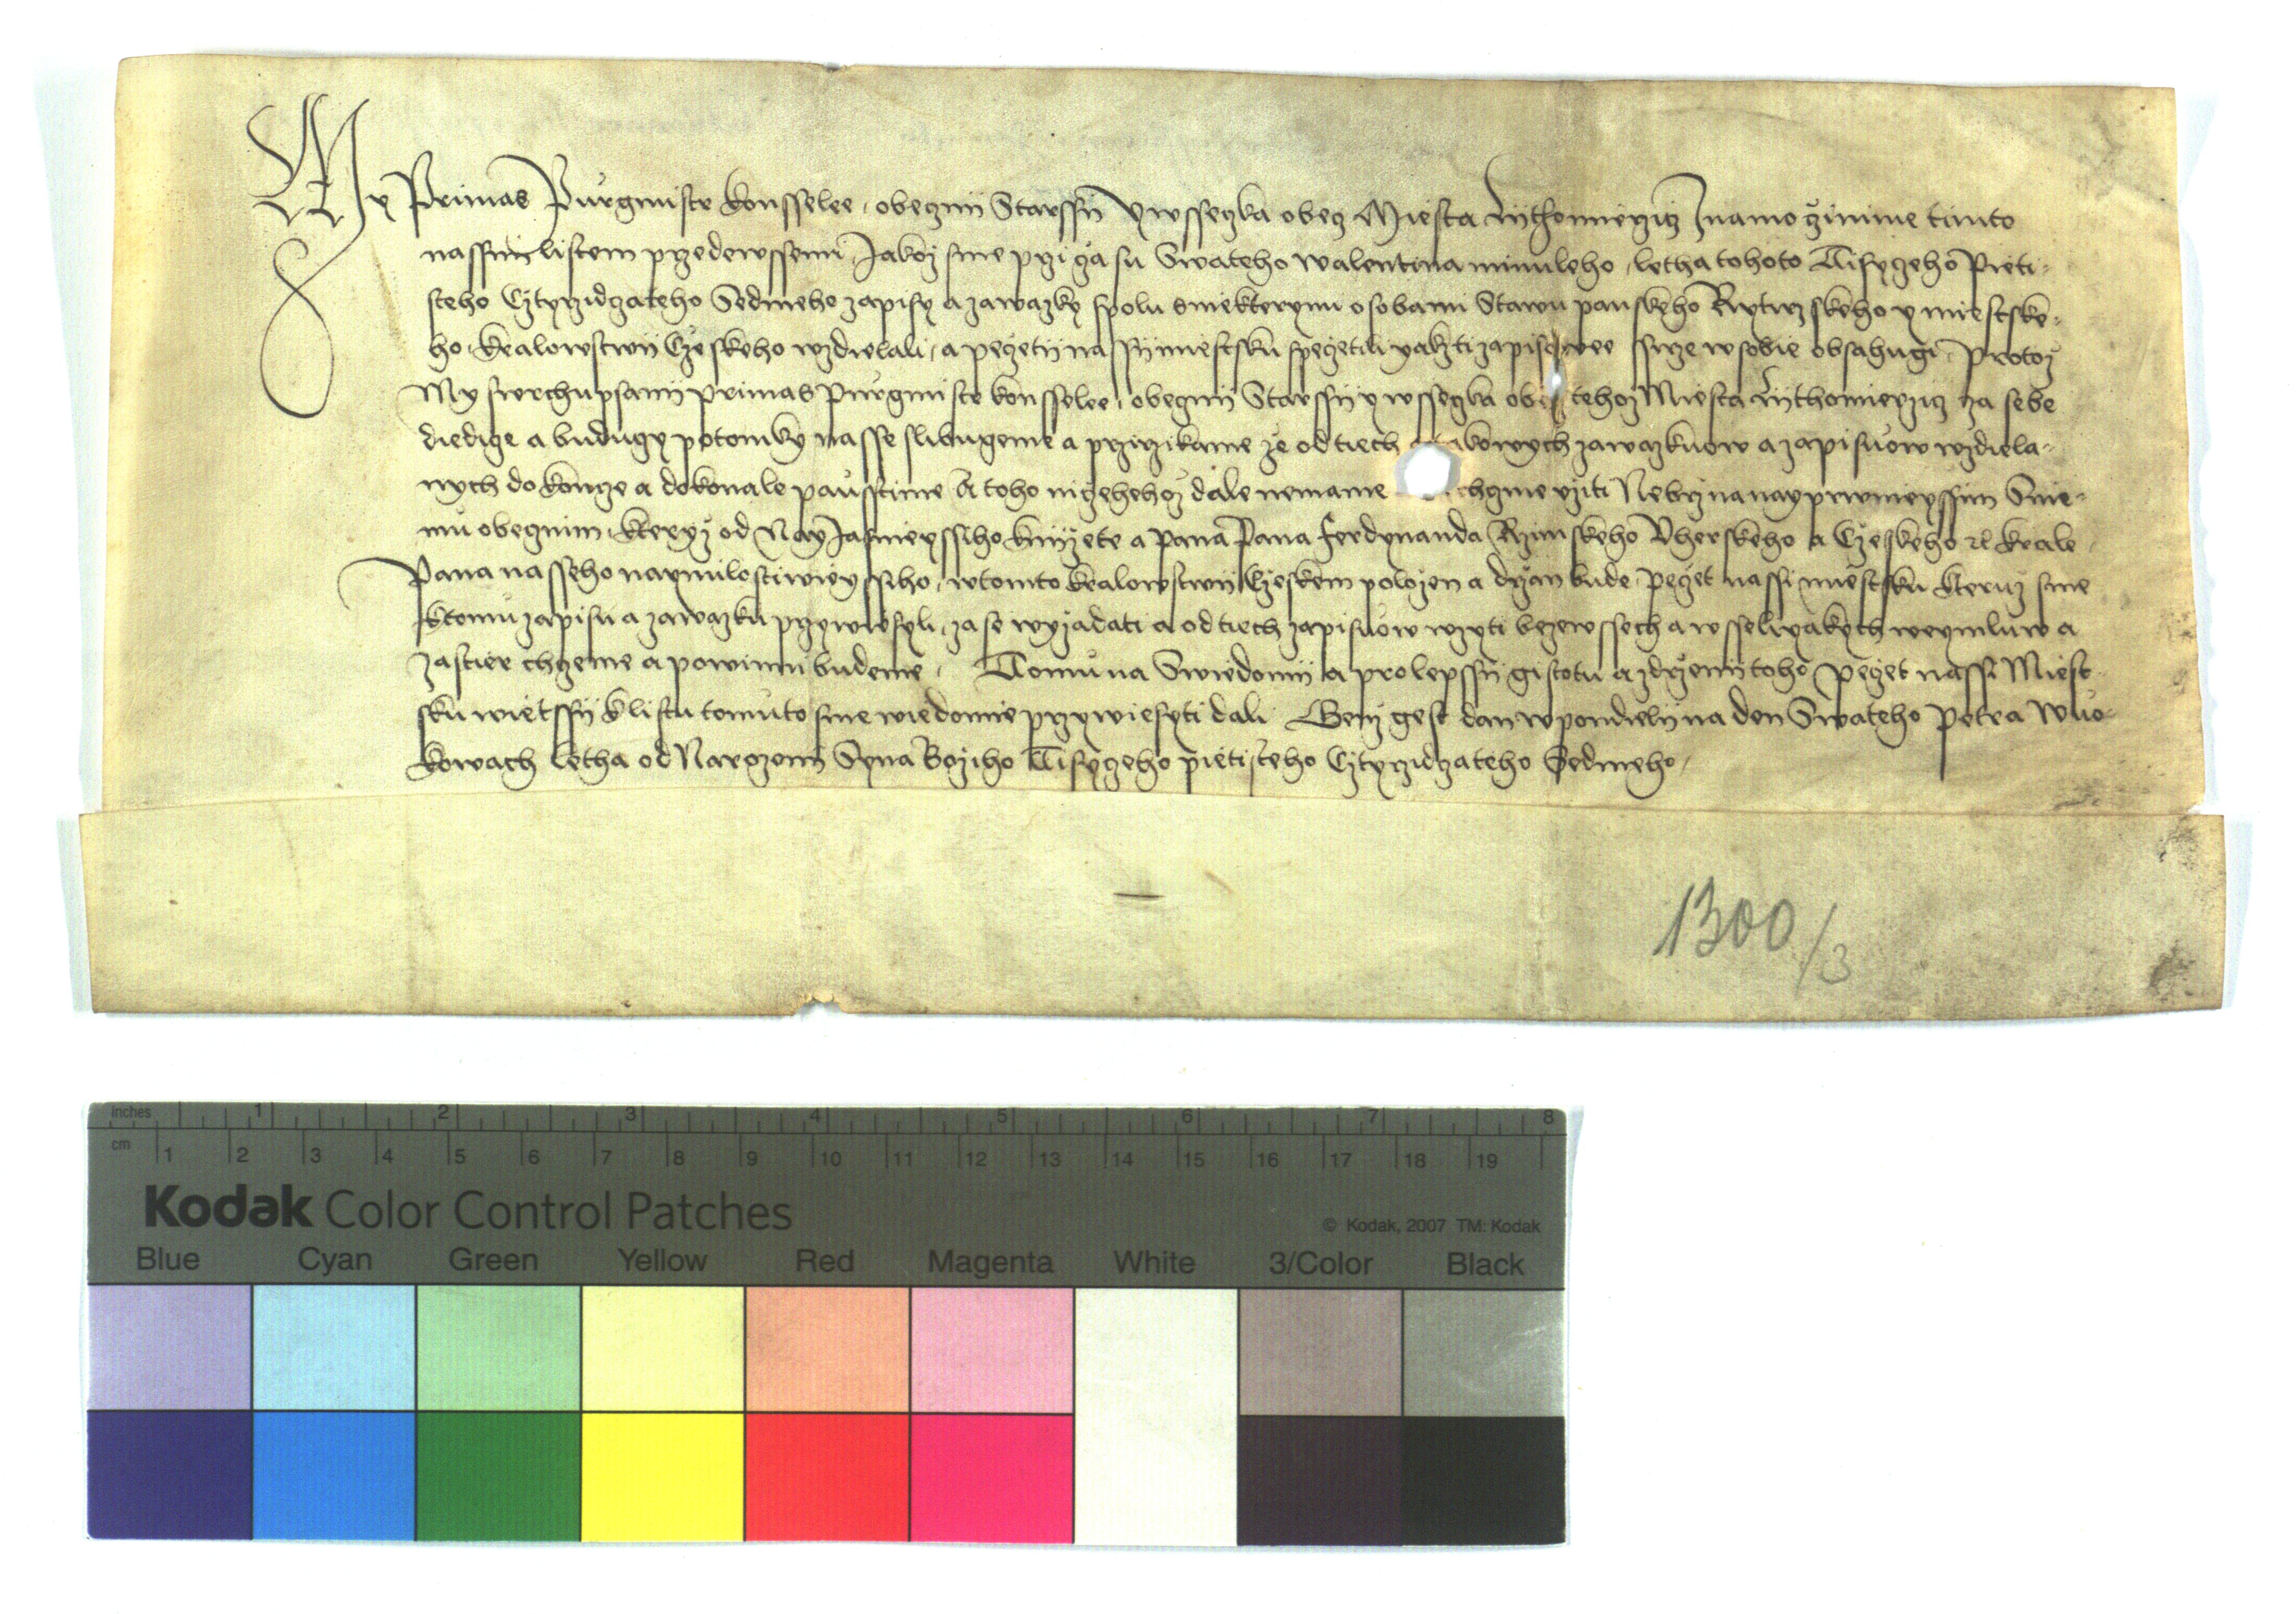 My Primas Purgmistr konsselee, obeznij Starssij Y wssezka obez Miesta Lijthomierzicz Znamo czinime timto
nassim listem przedewssemi, Jakoz sme przi czasu Swateho walentina minuleho, letha tohoto Tisyczeho Pieti-
steho Cztyrzidczateho Sedmeho zapisy a zawazky spolu s niekterymi osobami Stawu panskeho Rytirzskeho y miestske-
ho, kralowstwij Czeskeho vzdielali, a peczetij nassij miestsku speczetili yakz ti zapisowee ssirze w sobie obsahugi, Protoz
My swrchupsanij primas Purgmistr konsselee, obeznij Starssij y wssezka obez tehoz Miesta Lijthomierzicz za sebe
diedicze a buducy potomky nasse slibugeme a przirzikame ze od tiech takowych zawazkuow a zapisuow vzdiela-
nych dokonce a dokonale paustime A toho niczehehoz dale nemame chczme vziti Nebrz na nayprwnieyssim Snie-
mu obecznim, kteryz od NayJasnieyssiho knijzete a pana Pana Ferdynanda Rzimskeho Vherskeho a Czeskeho ꝛc krale,
Pana nasseho naymilostiwieyssiho, w tomto kralowstwij Czeskem polozen a drzan bude, peczet nassi miestsku kteruz sme
k tomu zapisu a zawazku przywiesyli, zase wyzadati a od tiech zapisuow vzyti bezewssech a wsseliyakych weymluw a
zastier chceme a powinni budeme, Tomu na Swiedomij a pro lepssij gistotu a zdrzenij toho peczet nassi Miest
sku wietssij k listu tomuto sme wiedomie przywiesyti dali Genz gest dan w pondielij na den Swateho Petra w uo-
kowach letha od Narozenij Syna Bozijho Tisyczeho pietisteho Cztyrzidczateho Sedmeho,
1300/3
inches 1 2 3 4 5 6 7 8
cm 1 2 3 4 5 6 7 8 9 10 11 12 13 14 15 16 17 18 19
Kodak Color Control Patches
© Kodak, 2007 TM: Kodak
Blue Cyan Green Yellow Red Magenta White 3/Color Black